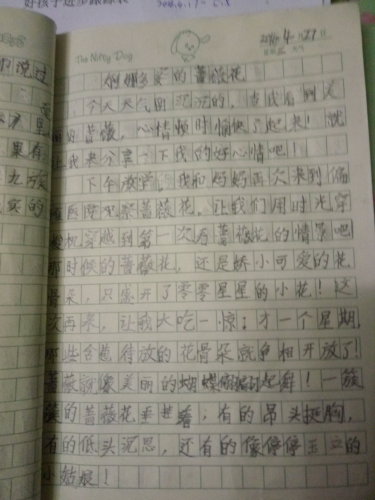 好孩子进步跟踪表
2016.4.17
The Nitey Dog
2016.4.27
婀娜多姿的蔷薇花
今天天气阴沉沉的，当我看到美
丽的蔷薇，心情顿时愉快了起来！就
让我来分享一下我的好心情吧！
下午放学，我和妈妈再次来到
医院观察蔷薇花。让我们用时光穿
梭机穿越到第一次看蔷薇花的情景吧
那时候的蔷薇花，还是娇小可爱的花
骨朵，只盛开了零零星星的小花！这
次再来，让我大吃一惊：才一个星期，
那些含苞待放的花骨朵就争相开放了！
蔷薇就像美丽的蝴蝶翩翩起舞！一簇
簇的蔷薇花垂挂着；有的昂头挺胸，
有的低头沉思，还有的像停停玉立的
小姑娘！
说过
里
果有
九方
实的